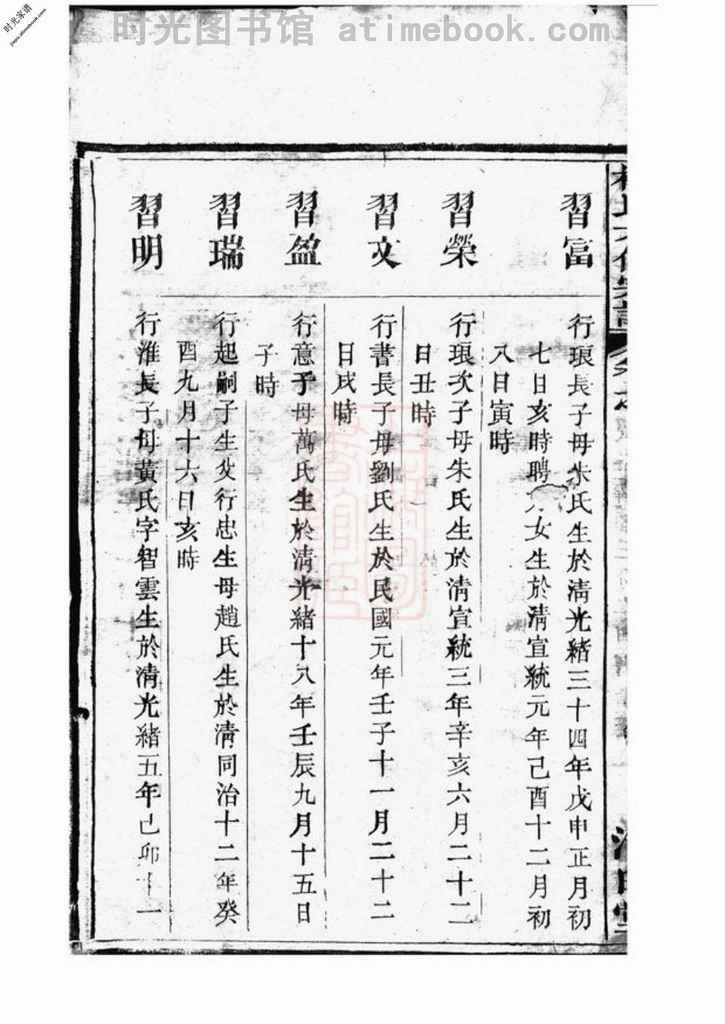 时光图书馆 atimebook.com
时光家谱
習富
行琅長子母朱氏生於淸光緖三十四年戊申正月初
七日亥時聘 女生於淸宣統元年己酉十二月初
八日寅時
習榮
行琅次子母朱氏生於淸宣統三年辛亥六月二十二
日丑時
習文
行書長子母劉氏生於民國元年壬子十一月二十二
日戌時
習盈
行意子母萬氏生於淸光緖十八年壬辰九月十五日
子時
習瑞
行起嗣子生父行忠生母趙氏生於淸同治十二年癸
酉九月十六日亥時
習明
行淮長子母黃氏字智雲生於淸光緖五年己卯十一